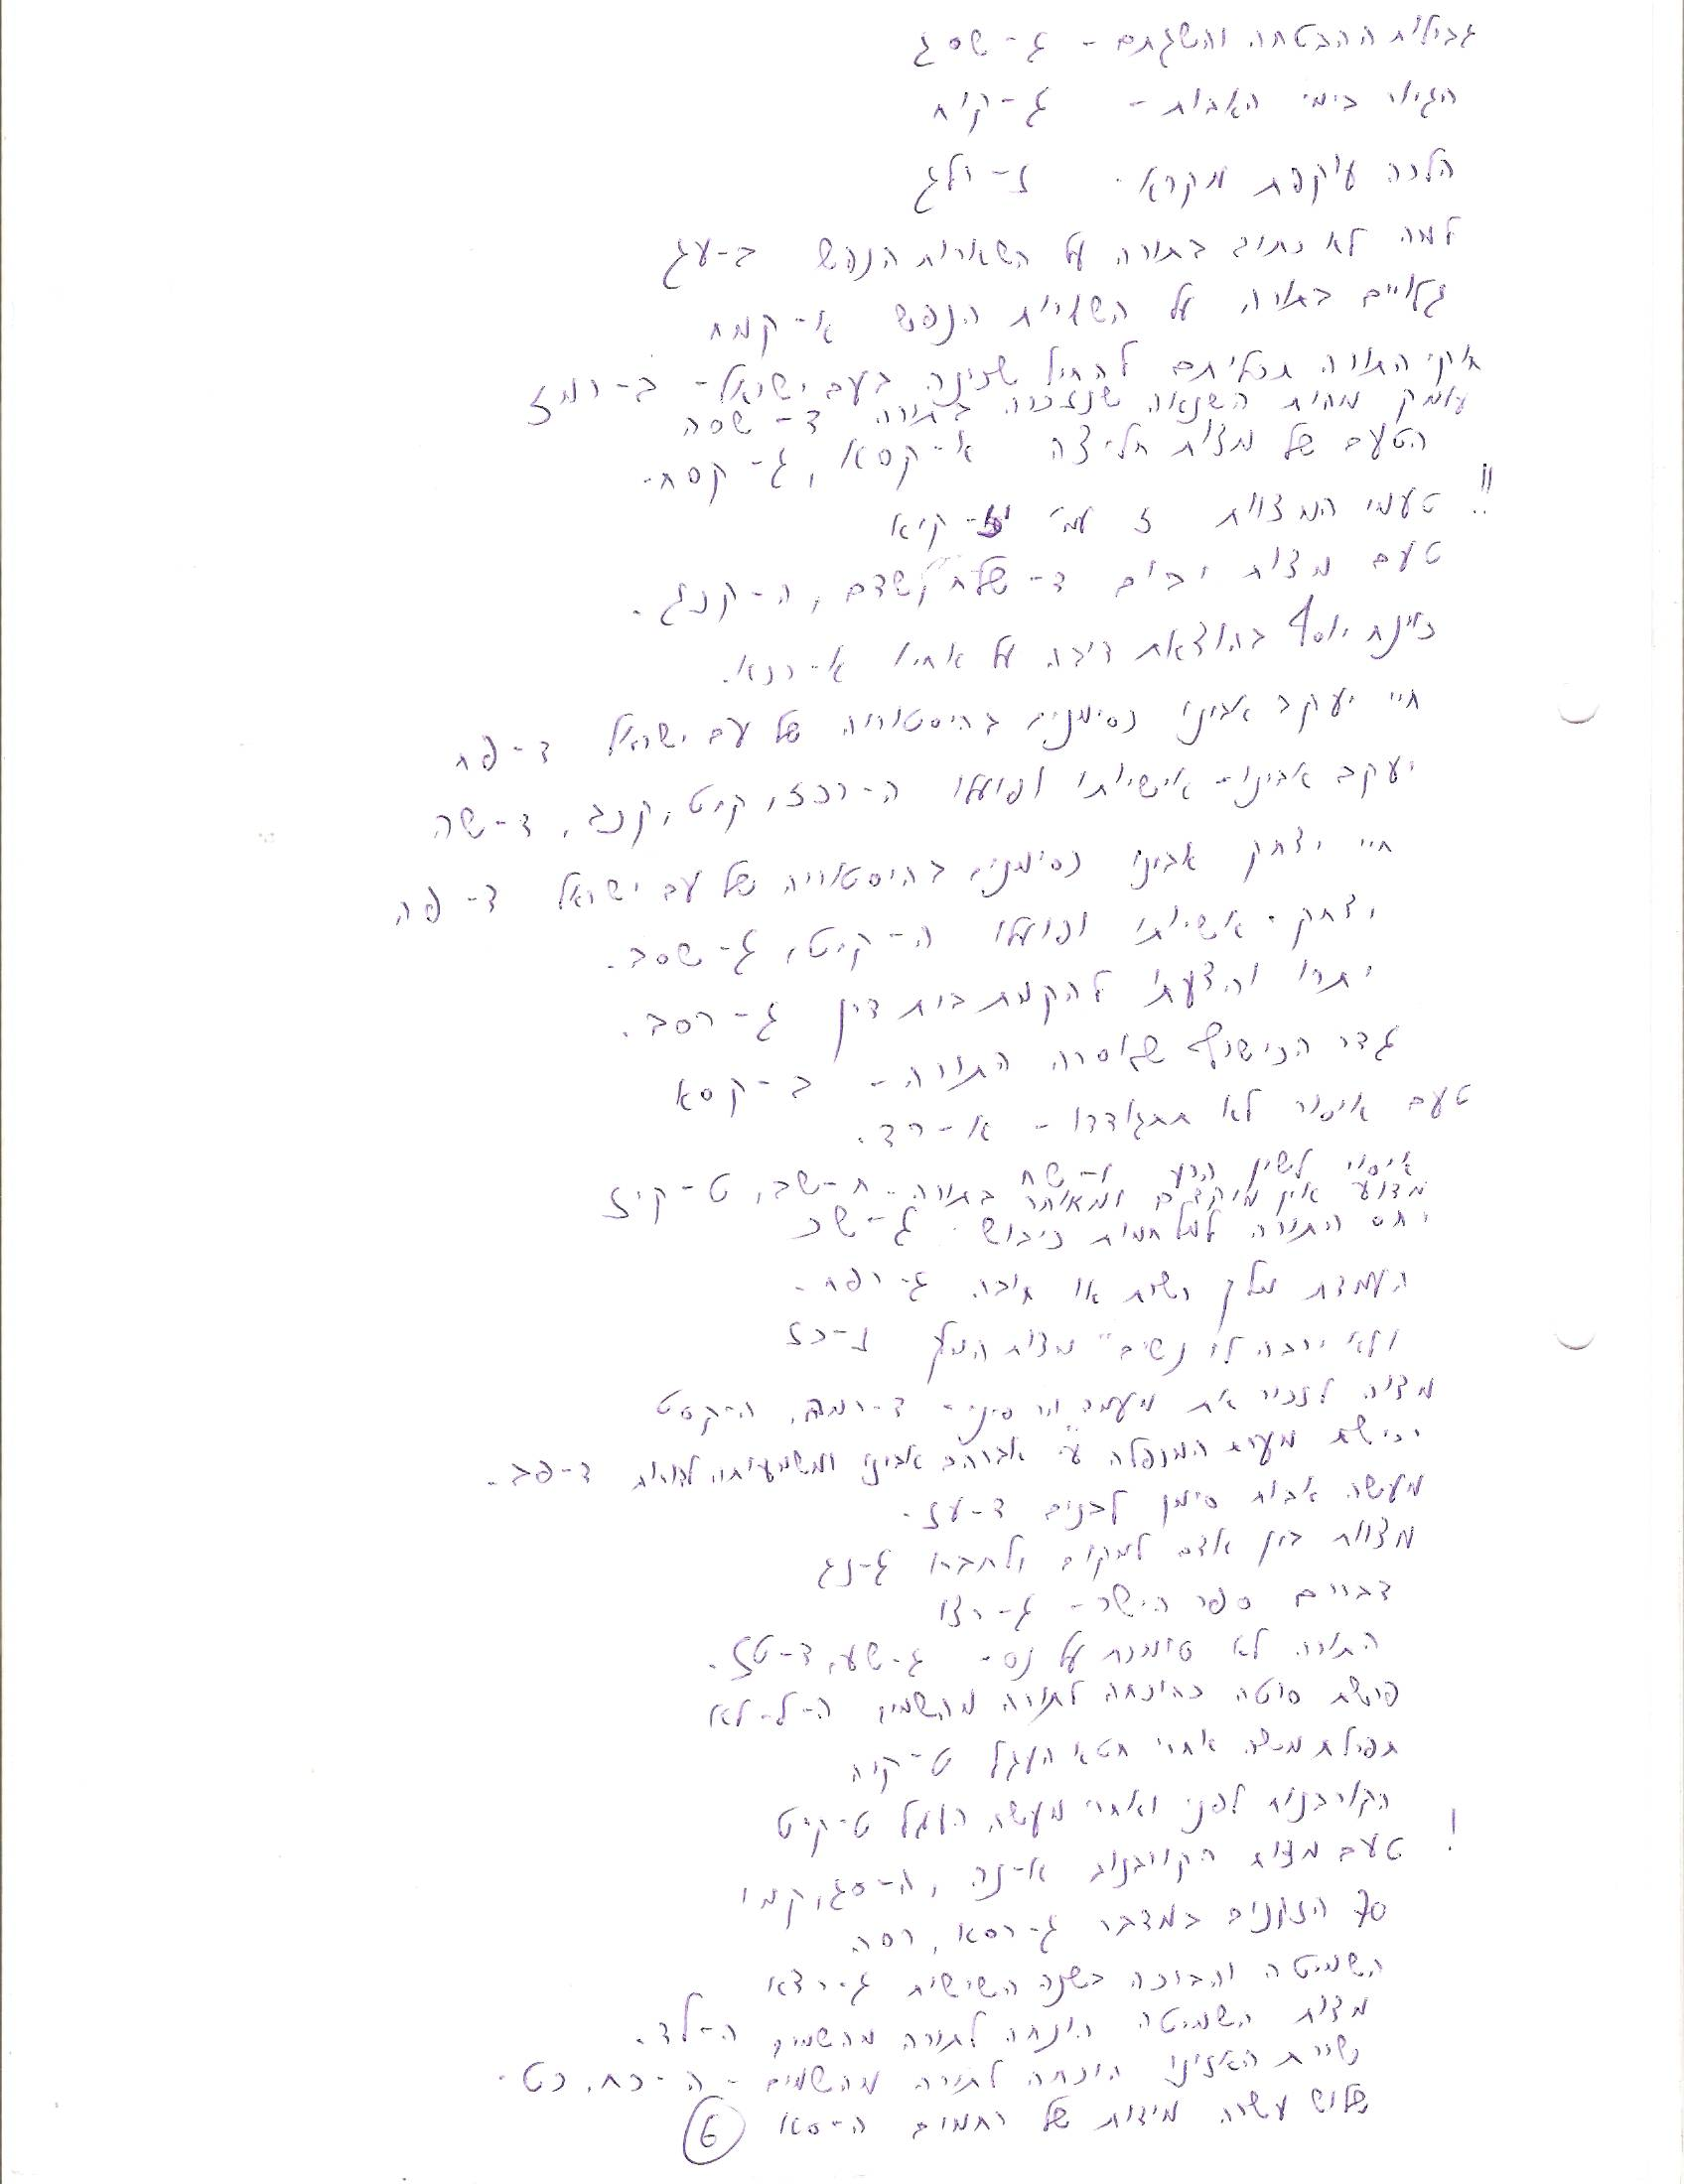 גבולות ההבטחה והשגתם - ג-שסג
הגיור בימי האבות - ג-קוח
הלכה עוקפת מקרא - ז-רלג
למה לא כתוב בתורה על השארות הנפש ב-עג
גלויים בתורה על השארות הנפש א-קמח
חוקי התורה תכליתם להחיל שכינה בעם ישראל - ב-רמז
עומק מהות השנאה שנזכרה בתורה ד-שסה
הטעם של מצות חליצה א-קסא, ג-קסח.
!! טעמי המצוות ז עמ' קיא
טעם מצות יבום ד-שלח, שדם, ה-קנג.
כוונת יוסף בהוצאת דיבה על אחיו א-רנא.
חיי יעקב אבינו כסימנים בהיסטוריה של עם ישראל ד-פח
יעקב אבינו - אישיותו ופועלו ה-רכז, קיט, קנב, ד-שה
חיי יצחק אבינו כסימנים בהיסטוריה של עם ישראל ד-פה
יצחק - אשיותו ופועלו ה-קיט, ג-שסב.
יתרו והצעתו להקמת בית דין ג-רסב.
גדר הכישוף שאסרה התורה - ב-קסא
טעם איסור לא תתגודדו - א-רד.
איסור לשון הרע ו-שח
מדוע אין מוקדם ומאוחר בתורה - ח-שב, ט-קיז
יחס התורה למלחמות כיבוש - ג-שכ
העמדת מלך רשות או חובה ג-רפח.
ולא ירבה לו נשים" מצות המלך ז-כז
מצוה לזכור את מעמד הר סיני - ד-רמה, ה-קסט
רכישת מערת המכפלה ע"י אברהם אבינו ומשמעותה לדורות ד-פב.
מעשה אבות סימן לבנים ד-עז.
מצוות בין אדם למקום ולחברו ג-נג
דברים ספר הישר - ג-רצו
התורה לא סומכת על נס - ג-שע, ד-טז.
פרשת סוטה כהוכחה לתורה מהשמים ה-ל-לא
תפילת משה אחרי חטא העגל ט-קיח
הקורבנות לפני ואחרי מעשה העגל ט-קיט
! טעם מצות הקורבנות א-נה, ה-סג, קמו
70 הזקנים במדבר ג-רסא, רסה
השמיטה והברכה בשנה השישית ג-רצא
מצות השמיטה הוכחה לתורה מהשמים ה-לד.
שירת האזינו הוכחה לתורה מהשמים - ה-כח, כט.
שלוש עשרה מידות של רחמים ה-סא 6